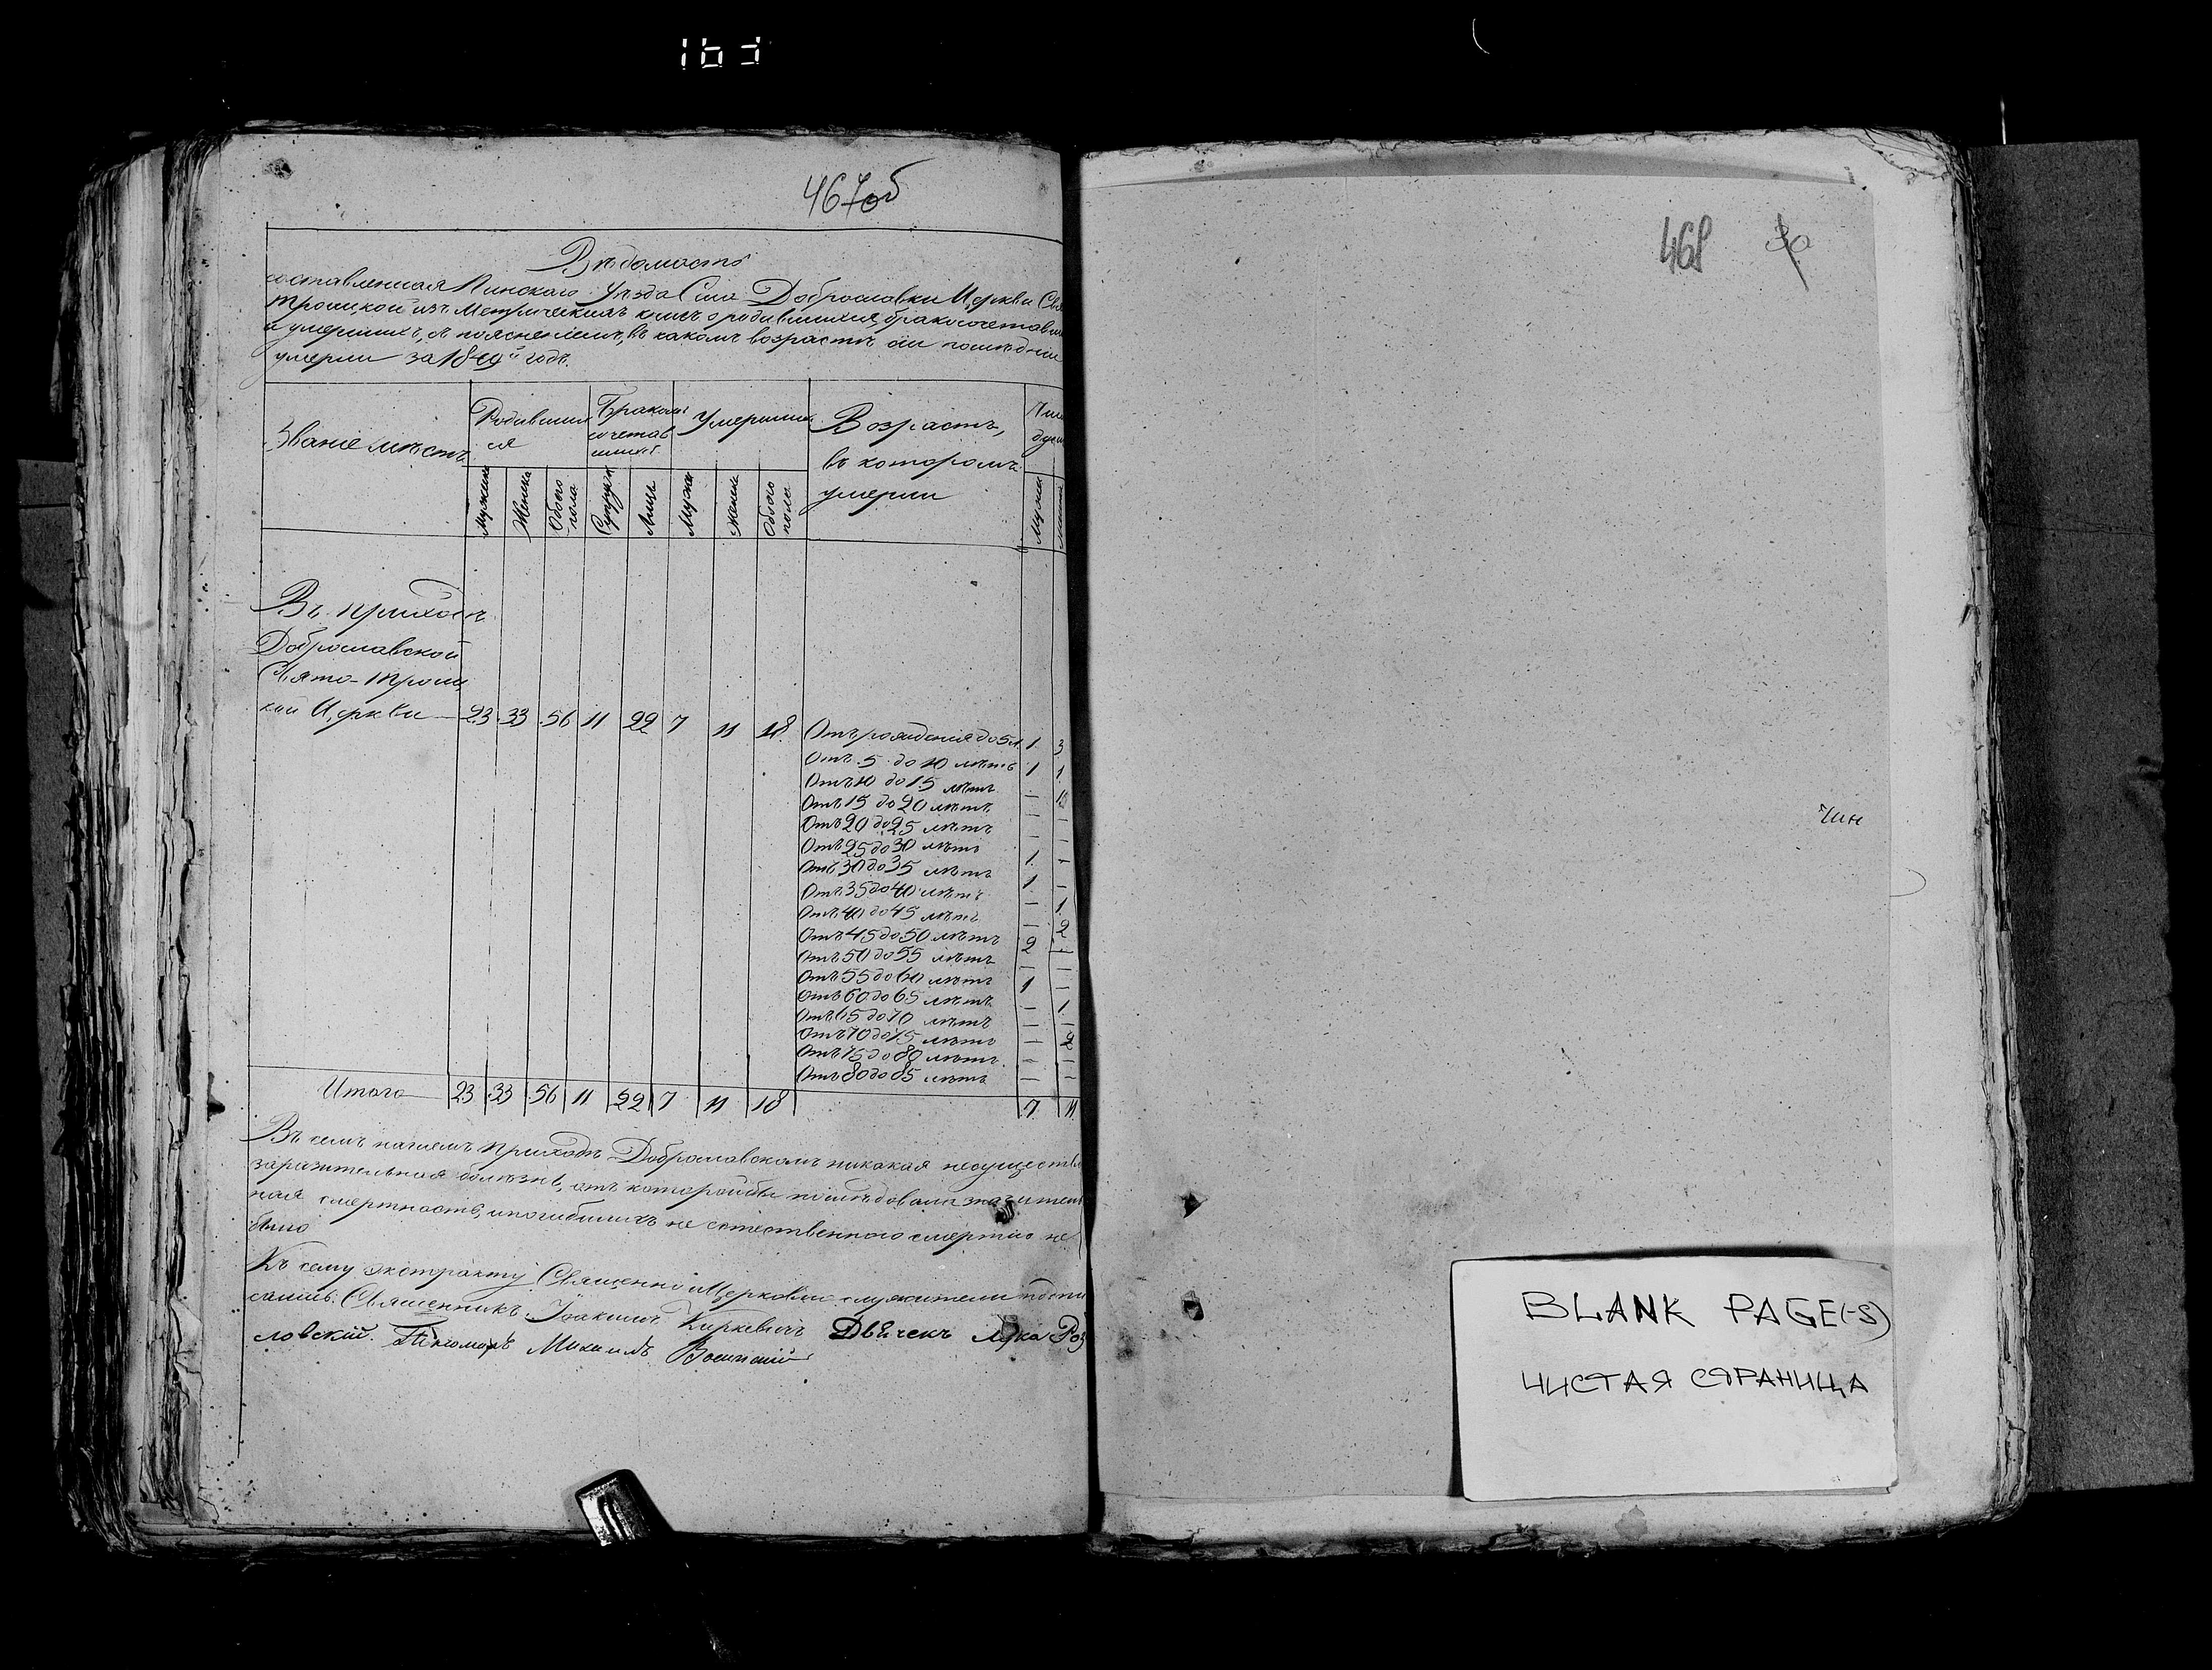 467об
Вѣдомость
составленная Пинскаго Уѣзда Села Доброславки Церкви Свя
Троицкой изъ Метрическихъ книгъ о родившихся, бракосочетав
и умершихъ, съ поясненіемъ, въ какомъ возрастѣ сіи послѣдніе
умерли за 1849й годъ.
Званіе мѣстъ
Родивши
ся
Бракомъ
сочетав
шихся
Умершихъ
Возрастъ,
въ которомъ
умерли
Чис
душ
Мужеска
Женска
Обоего пола
Супруж
Лицъ
Мужск
Женск
Обоего пола
Мужск
Въ приходѣ
Доброславской
Свято-Троиц
кой Церкви 23 33 56 11 22 7 11 18
Отъ рожденія до 5 л. 1 3
Отъ 5 до 10 лѣтъ 1 1
Отъ 10 до 15 лѣтъ —
Отъ 15 до 20 лѣтъ — —
Отъ 20 до 25 лѣтъ — —
Отъ 25 до 30 лѣтъ 1 —
Отъ 30 до 35 лѣтъ 1 —
Отъ 35 до 40 лѣтъ — 1
Отъ 40 до 45 лѣтъ — 2
Отъ 45 до 50 лѣтъ 2 —
Отъ 50 до 55 лѣтъ — —
Отъ 55 до 60 лѣтъ 1 —
Отъ 60 до 65 лѣтъ — 1
Отъ 65 до 70 лѣтъ — —
Отъ 70 до 75 лѣтъ — 2
Отъ 75 до 80 лѣтъ — —
Отъ 80 до 85 лѣтъ — —
Итого 23 33 56 11 22 7 11 18 7 11
Въ семъ нашемъ приходѣ Доброславскомъ никакая несуществ
заразительная болѣзнь, отъ которой бы послѣдовала значитель
ная смертность, и погибшихъ не естественною смертію не
было
Къ сему экстракту Священно и Церковно служители подпи
сались. Священникъ Іоакимъ Киркевичъ Дьячекъ Лука Роз
ловскій. Пономарь Михаилъ
468 30
Чин
BLANK PAGE(-S)
ЧИСТАЯ СТРАНИЦА